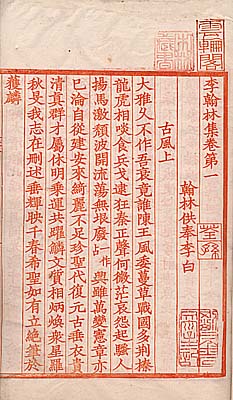 雲輪閣
李翰林集卷第一
荃孫
翰林供奉李白
古風上
大雅久不作吾衰竟誰陳王風委蔓草戰國多荊榛
龍虎相啖食兵戈逮狂秦正聲何微茫哀怨起騷人
揚馬激頹波開流蕩無垠廢一作興雖萬變憲章亦
已淪自從建安來綺麗不足珍聖代復元古垂衣貴
清真群才屬休明乘運共躍鱗文質相炳煥衆星羅
秋旻我志在刪述垂輝映千春希聖如有立絕筆於
獲麟